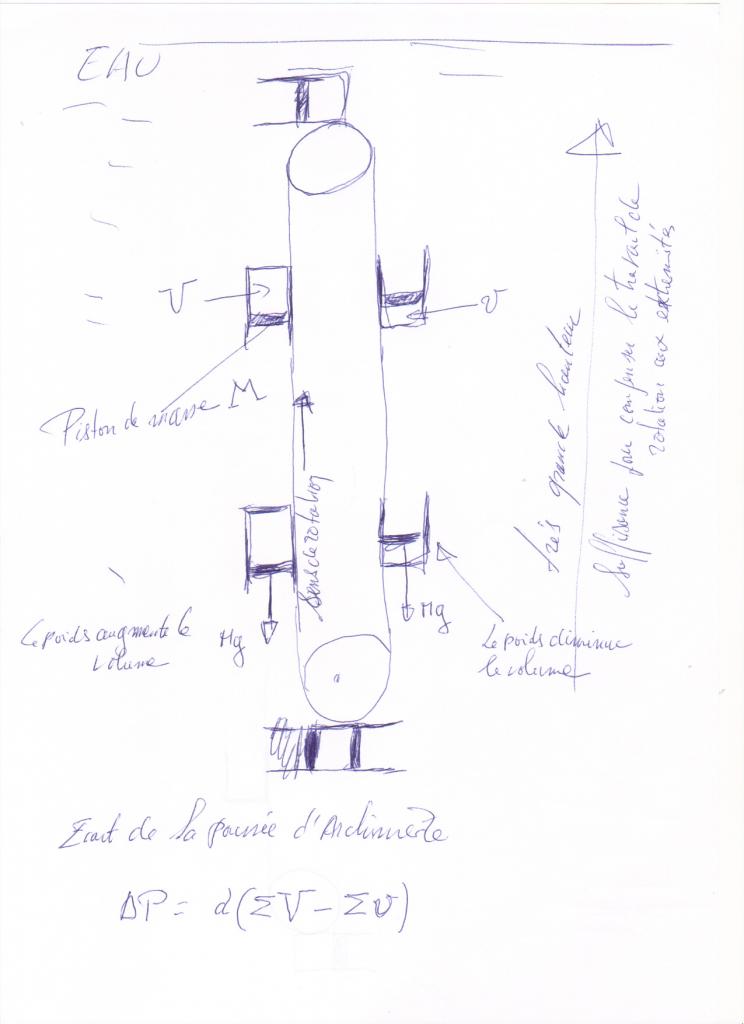 EAU
V
v
Piston de masse M
Sens de rotation
très grande hauteur
suffisance pour compenser le travail de
rotation aux extrémités
Le poids augmente le
volume
Mg
Mg
Le poids diminue
le volume
Ecart de la poussée d'Archimède
ΔP = d(ΣV - Σv)